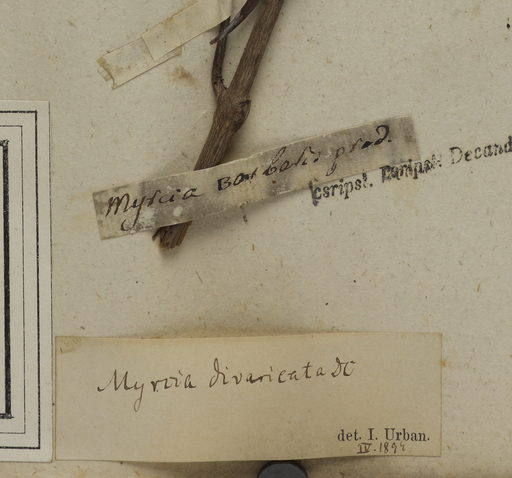 Myrcia Barbatis prod.
scripst. Decand
Myrcia divaricata DC
det. I. Urban.
IV. 1894